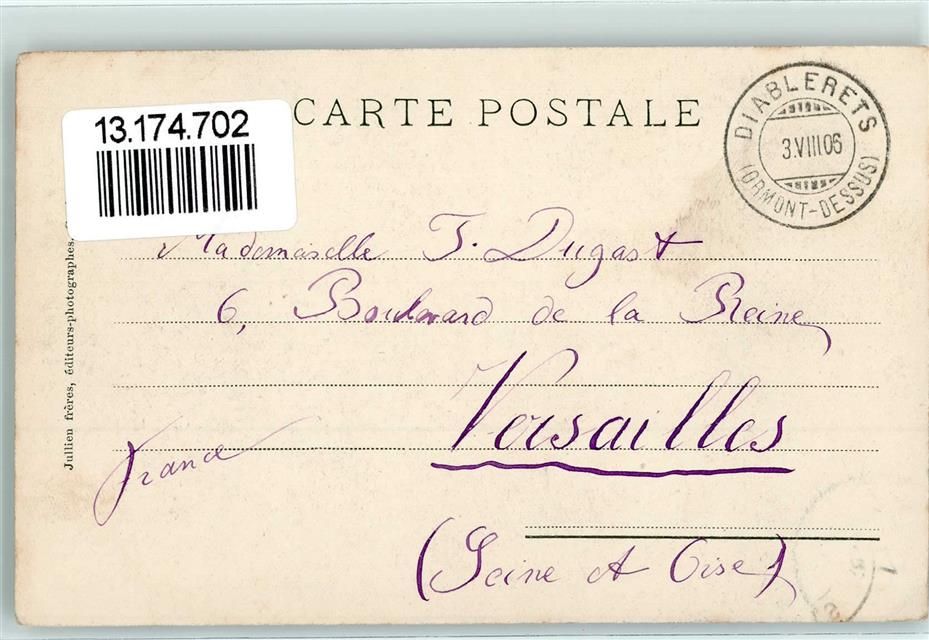 13.174.702
CARTE POSTALE
DIABLERETS
3.VIII.06
(ORMONT-DESSUS)
Mademoiselle F. Dugast
6, Boulevard de la Reine
Versailles
France
(Seine et Oise)
Jullien frères, éditeurs-photographes.